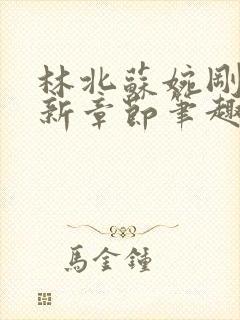 林北蘇婉剛
新章節筆趣
馬金鍾